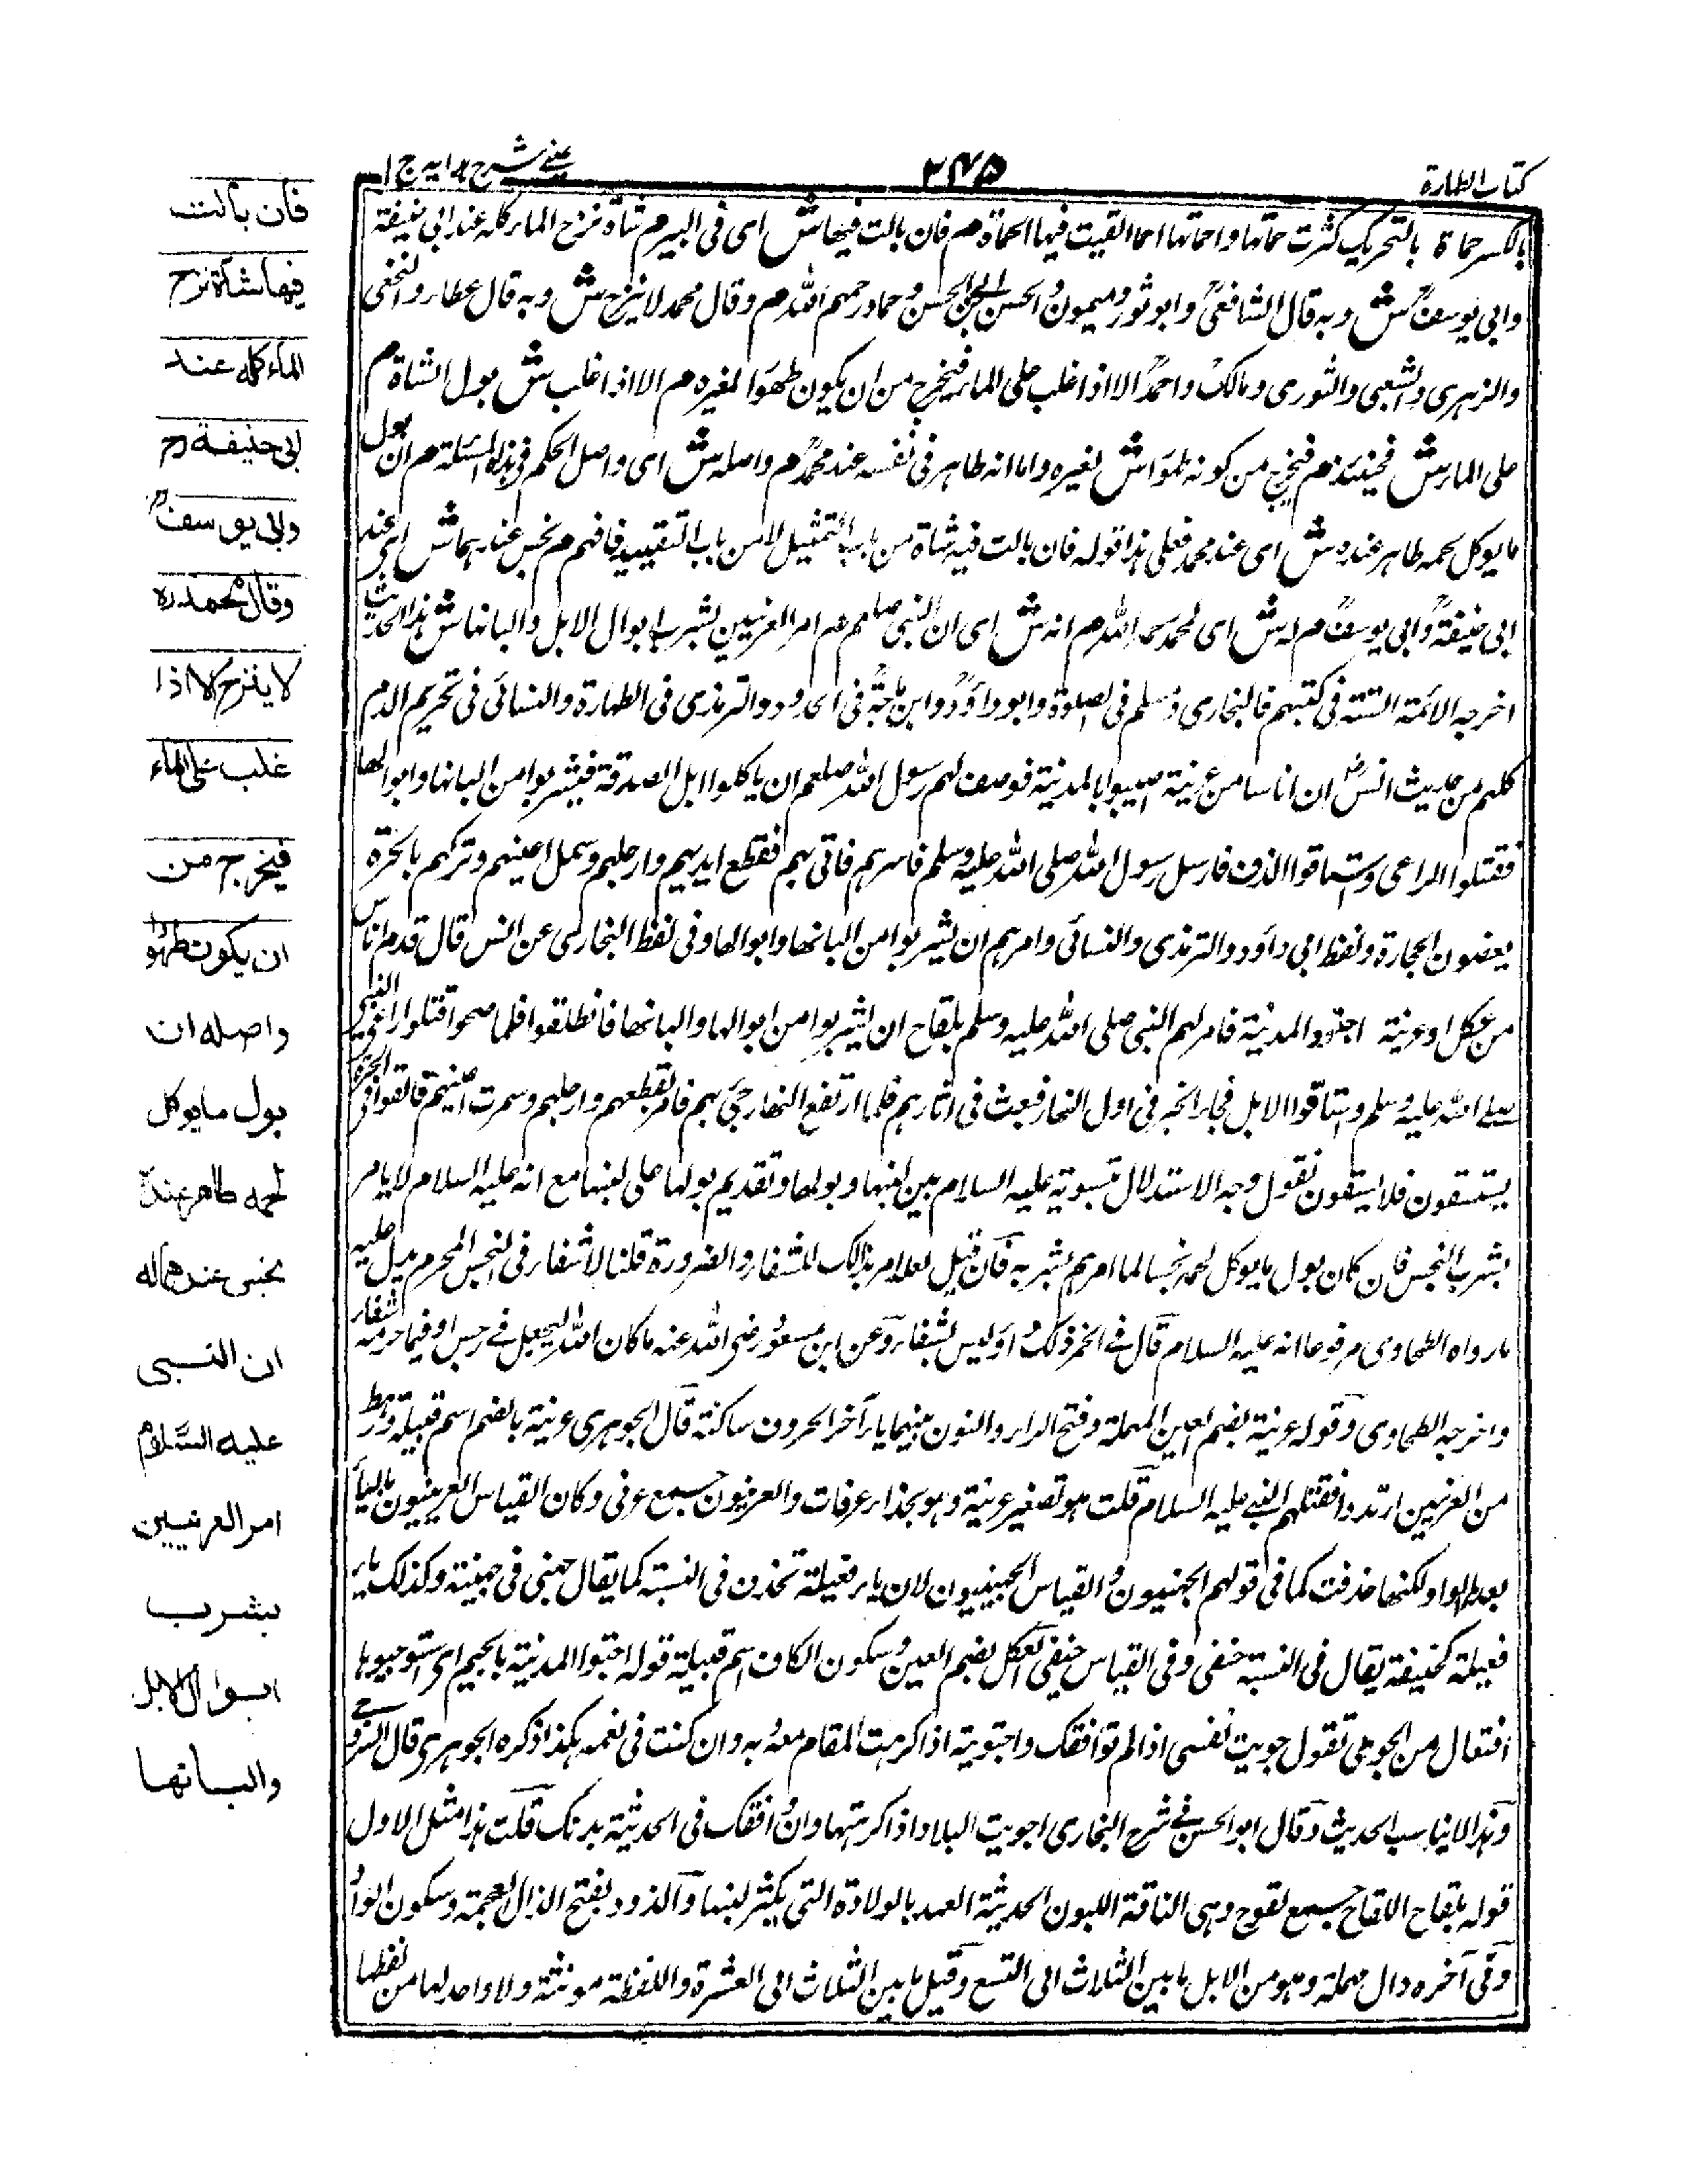 كتاب الطهارة
٢٤٥
عينى شرح هدايه ج ١
بالكسر حماة بالتحريك كثرت حمأتها واحمأتها اما القيت فيها الحمأة م فان بالت فيها ش اى فى البير م شاة نزح الماء كله عند ابى حنيفة
وابى يوسف ش وبه قال الشافعى وابو ثور وميمون والحسن وحماد رحمهم الله م وقال محمد لا ينزح ش وبه قال عطاء والنخعى
والزهرى والشعبى والثورى ومالك واحمد الا اذا غلب على الماء فيخرج من ان يكون طهورا لغيره م الا اذا غلب ش بول الشاة م
على الماء ش فحينئذ م فيخرج من كونه طهورا ش لغيره واما انه طاهر فى نفسه عند محمد م واصله ش اى واصل الحكم فى هذه المسئلة م ان بول
ما يوكل لحمه طاهر عنده ش اى عند محمد فعلى هذا قوله فان بالت فيه شاة من باب التمثيل لا من باب التقييد فافهم م نجس عندهما ش اى عند
ابى حنيفة وابى يوسف م له ش اى لمحمد رحمه الله م انه ش اى ان النبى صلعم م امر العرنيين بشرب ابوال الابل والبانها ش هذا الحديث
اخرجه الائمة الستة فى كتبهم فالبخارى ومسلم فى الصلوة وابو داؤد وابن ماجة فى الحدود والترمذى فى الطهارة والنسائى فى تحريم الدم
كلهم من حديث انس ان اناسا من عرينة اجتووا بالمدينة فرخص لهم رسول الله صلعم ان ياكلوا ابل الصدقة فيشربوا من البانها وابوالها
فقتلوا الراعى واستاقوا الذود فارسل رسول الله صلى الله عليه وسلم فاسرهم فاتى بهم فقطع ايديهم وارجلهم وسمل اعينهم وتركهم بالحرة
يعضون الحجارة ولفظ ابى داؤد والترمذى والنسائى وامرهم ان يشربوا من البانها وابوالها وفى لفظ البخارى عن انس قال قدم اناس
من عكل او عرينة اجتووا المدينة فامر لهم النبى صلى الله عليه وسلم بلقاح ان يشربوا من ابوالها والبانها فانطلقوا فلما صحوا قتلوا راعى النبى
صلى الله عليه وسلم واستاقوا الابل فجاء الخبر فى اول النهار فبعث فى اثارهم فلما ارتفع النهار جئ بهم فامر بقطعهم وارجلهم وسمرت اعينهم فالقوا فى الحرة
يستسقون فلا يسقون نقول وجه الاستدلال تسويته عليه السلام بين لبنها وبولها وتقديم بولها على لبنها مع انه عليه السلام لا يامر
بشرب النجس فان كان بول ما يوكل لحمه نجسا لما امرهم بشربه فان قيل لعله امر بذلك للشفاء والضرورة قلنا لا شفاء فى النجس المحرم يدل عليه
ما رواه الطحاوى مرفوعا انه عليه السلام قال فى الخمر ذلك داء وليس بشفاء وعن ابن مسعود رضى الله عنه ما كان الله ليجعل فى رجس او فيما حرمه شفاء
واخرجه الطحاوى وقوله عرينة بضم العين المهملة وفتح الراء والنون بينهما ياء آخر الحروف ساكنة قال الجوهرى عرينة بالضم اسم قبيلة ورهط
من العرنيين ارتدوا فقتلهم النبى عليه السلام قلت هو تصغير عرنة وهو بحذاء عرفات والعرنيون جمع عرنى وكان القياس العرينيون بالياء
بعد الراء ولكنها حذفت كما فى قولهم الجهنيون والقياس الجهينيون لان ياء فعيلة تحذف فى النسبة كما يقال جهنى فى جهينة وكذلك ياء
فعيلة كحنيفة يقال فى النسبة حنفى وفى القياس حنيفى العكل بضم العين وسكون الكاف اسم قبيلة قوله اجتووا المدينة بالجيم اى استوخموها
افتعال من الجوى تقول جويت نفسى اذا لم توافقك واجتويته اذا كرهت المقام به وان كنت فى نعمه هكذا ذكره الجوهرى قال
وهذا لا يناسب الحديث وقال ابو الحسن فى شرح البخارى اجويت البلاد اذا كرهتها وان وافقك فى الحديثة بدنك قلت هذا مثل الاول
قوله بلقاح اللقاح جمع لقوح وهى الناقة اللبون الحديثة العهد بالولادة التى يكثر لبنها والذود بفتح الذال المعجمة وسكون الواو
وفى آخره دال مهملة وهو من الابل ما بين الثلاث الى التسع وقيل ما بين الثلاث الى العشرة واللفظة مونثة ولا واحد لها من لفظها
فان بالت
فيها شاة نزح
الماء كله عند
ابى حنيفة رح
وابى يوسف رح
وقال محمد ره
لا ينزح الا اذا
غلب على الماء
فيخرج من
ان يكون طهورا
واصله ان
بول ما يوكل
لحمه طاهر عنده
نجس عندهما له
ان النبى
عليه السلام
امر العرنيين
بشرب
ابوال الابل
والبانها